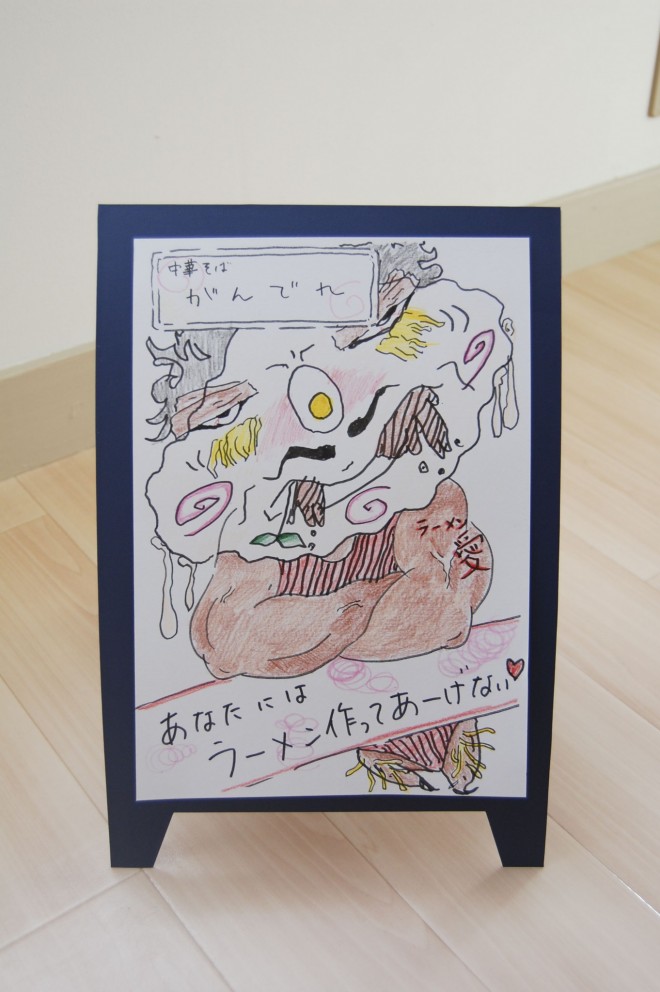 中華そば
がんでれ
ラーメン
愛
あなたには
ラーメン作ってあーげない♥